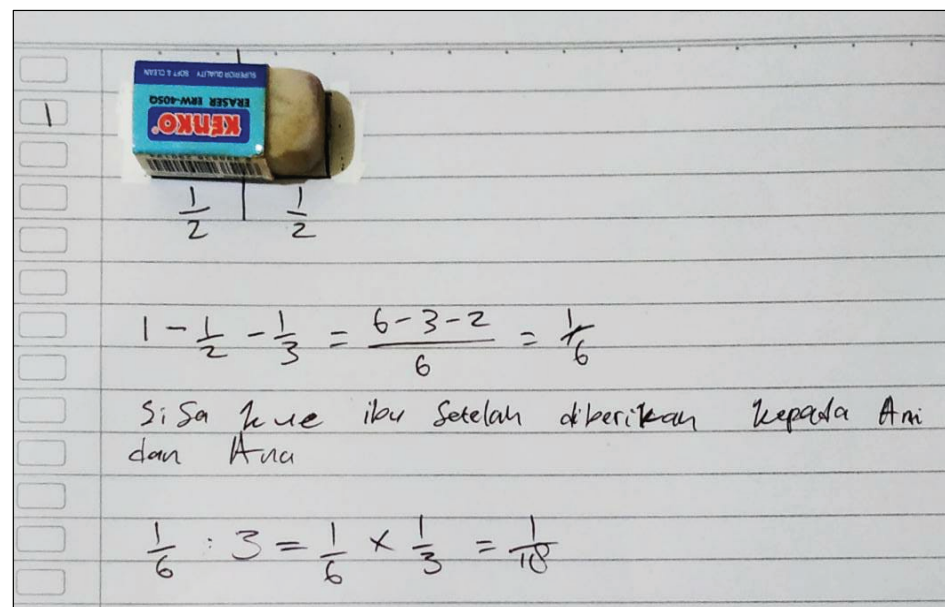 SUPERIOR QUALITY SOFT & CLEAN
ERASER ERW-40SQ
KENKO
1
1/2 | 1/2
1 - 1/2 - 1/3 = (6-3-2)/6 = 1/6
Sisa kue ibu setelah diberikan kepada Ani
dan Ana
1/6 : 3 = 1/6 × 1/3 = 1/18